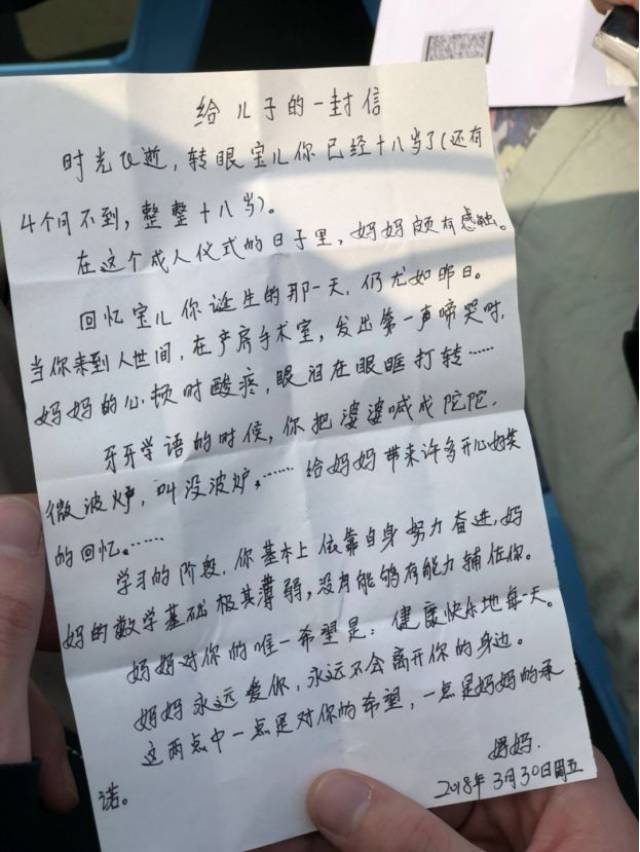 给儿子的一封信
时光飞逝，转眼宝儿你已经十八岁了（还有
4个月不到，整整十八岁）。
在这个成人仪式的日子里，妈妈颇有感触。
回忆宝儿你诞生的那一天，仍尤如昨日。
当你来到人世间，在产房手术室，发出第一声啼哭时，
妈妈的心顿时酸疼，眼泪在眼眶打转……
牙牙学语的时候，你把婆婆喊成陀陀，
微波炉，叫没波炉，……给妈妈带来许多开心好笑
的回忆。……
学习的阶段，你基本上依靠自身努力奋进，妈
妈的数学基础极其薄弱，没有能够有能力辅佐你。
妈妈对你的唯一希望是：健康快乐地每一天。
妈妈永远爱你，永远不会离开你的身边。
这两点中一点是对你的希望，一点是妈妈的承
诺。
妈妈.
2018年3月30日周五